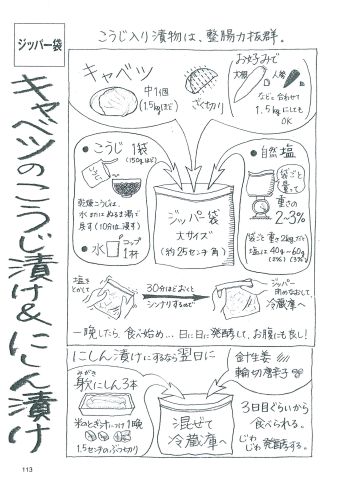 ジッパー袋
キャベツのこうじ漬け&にしん漬け
こうじ入り漬物は、整腸力抜群。
キャベツ
中1個
(1.5kgほど)
ざく切り
お好みで
大根
人参
などと合わせて
1.5kgにしても
OK
●こうじ1袋
(150gほど)
乾燥こうじは、
水またはぬるま湯で
戻す(10分ほど浸す)
●水
コップ
1杯
ジッパー袋
大サイズ
(約25センチ角)
●自然塩
袋ごと
量って
重さの
2~3%
袋ごと重さ2kgだと
塩は40g~60g
(2%)(3%)
塩を
とかして
30分ほどおくと
シンナリするので
ジッパー
閉めなおして
冷蔵庫へ
一晩したら、食べ始め…日に日に発酵して、お腹にも良し!
にしん漬けにするなら翌日に
みがき
軟にしん3本
米のとぎ汁につけ1晩
1.5センチのぶつ切り
混ぜて
冷蔵庫へ
針生姜
輪切唐辛子
3日目ぐらいから
食べられる。
じわじわ発酵する。
113